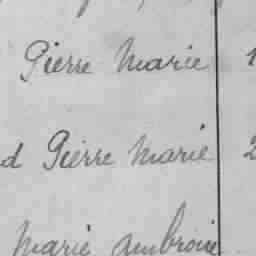 Pierre Marie 1
d Pierre Marie 2
Marie Ambroise